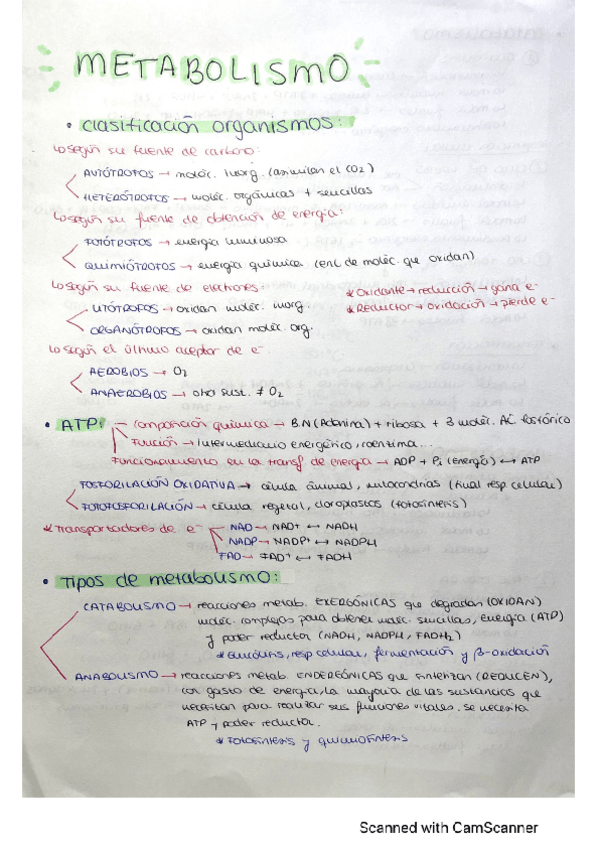 METABOLISMO
• Clasificación organismos:
↳ según su fuente de carbono:
AUTÓTROFOS → moléc. inorg. (asimilan el CO2)
HETERÓTROFOS → moléc. orgánicas + sencillas
↳ según su fuente de obtención de energía:
FOTÓTROFOS → energía luminosa
QUIMIÓTROFOS → energía química (enl. de moléc. que oxidan)
↳ según su fuente de electrones:
LITÓTROFOS → oxidan moléc. inorg.
ORGANÓTROFOS → oxidan moléc. org.
* Oxidante → reducción → gana e-
* Reductor → oxidación → pierde e-
↳ según el último aceptor de e-
AEROBIOS → O2
ANAEROBIOS → otra sust. ≠ O2
• ATP: → composición química → B.N (Adenina) + ribosa + 3 moléc. Ác fosfórico
Función → Intermediario energético, coenzima...
Funcionamiento en la transf de energía → ADP + Pi (Energía) ↔ ATP
FOSFORILACIÓN OXIDATIVA → célula animal, mitocondrias (final resp celular)
FOTOFOSFORILACIÓN → célula vegetal, cloroplastos (fotosíntesis)
* Transportadores de e-
NAD → NAD+ ↔ NADH
NADP → NADP+ ↔ NADPH
FAD → FAD+ ↔ FADH
• Tipos de metabolismo:
CATABOLISMO → reacciones metab. EXERGÓNICAS que degradan (OXIDAN)
moléc. complejas para obtener moléc. sencillas, energía (ATP)
y poder reductor (NADH, NADPH, FADH2)
* Glucólisis, resp celular, fermentación y β-oxidación
ANABOLISMO → reacciones metab. ENDERGÓNICAS que sintetizan (REDUCEN),
con gasto de energía, la mayoría de las sustancias que
necesitan para realizar sus funciones vitales. Se necesita
ATP y poder reductor.
* Fotosíntesis y quimiosíntesis
Scanned with CamScanner